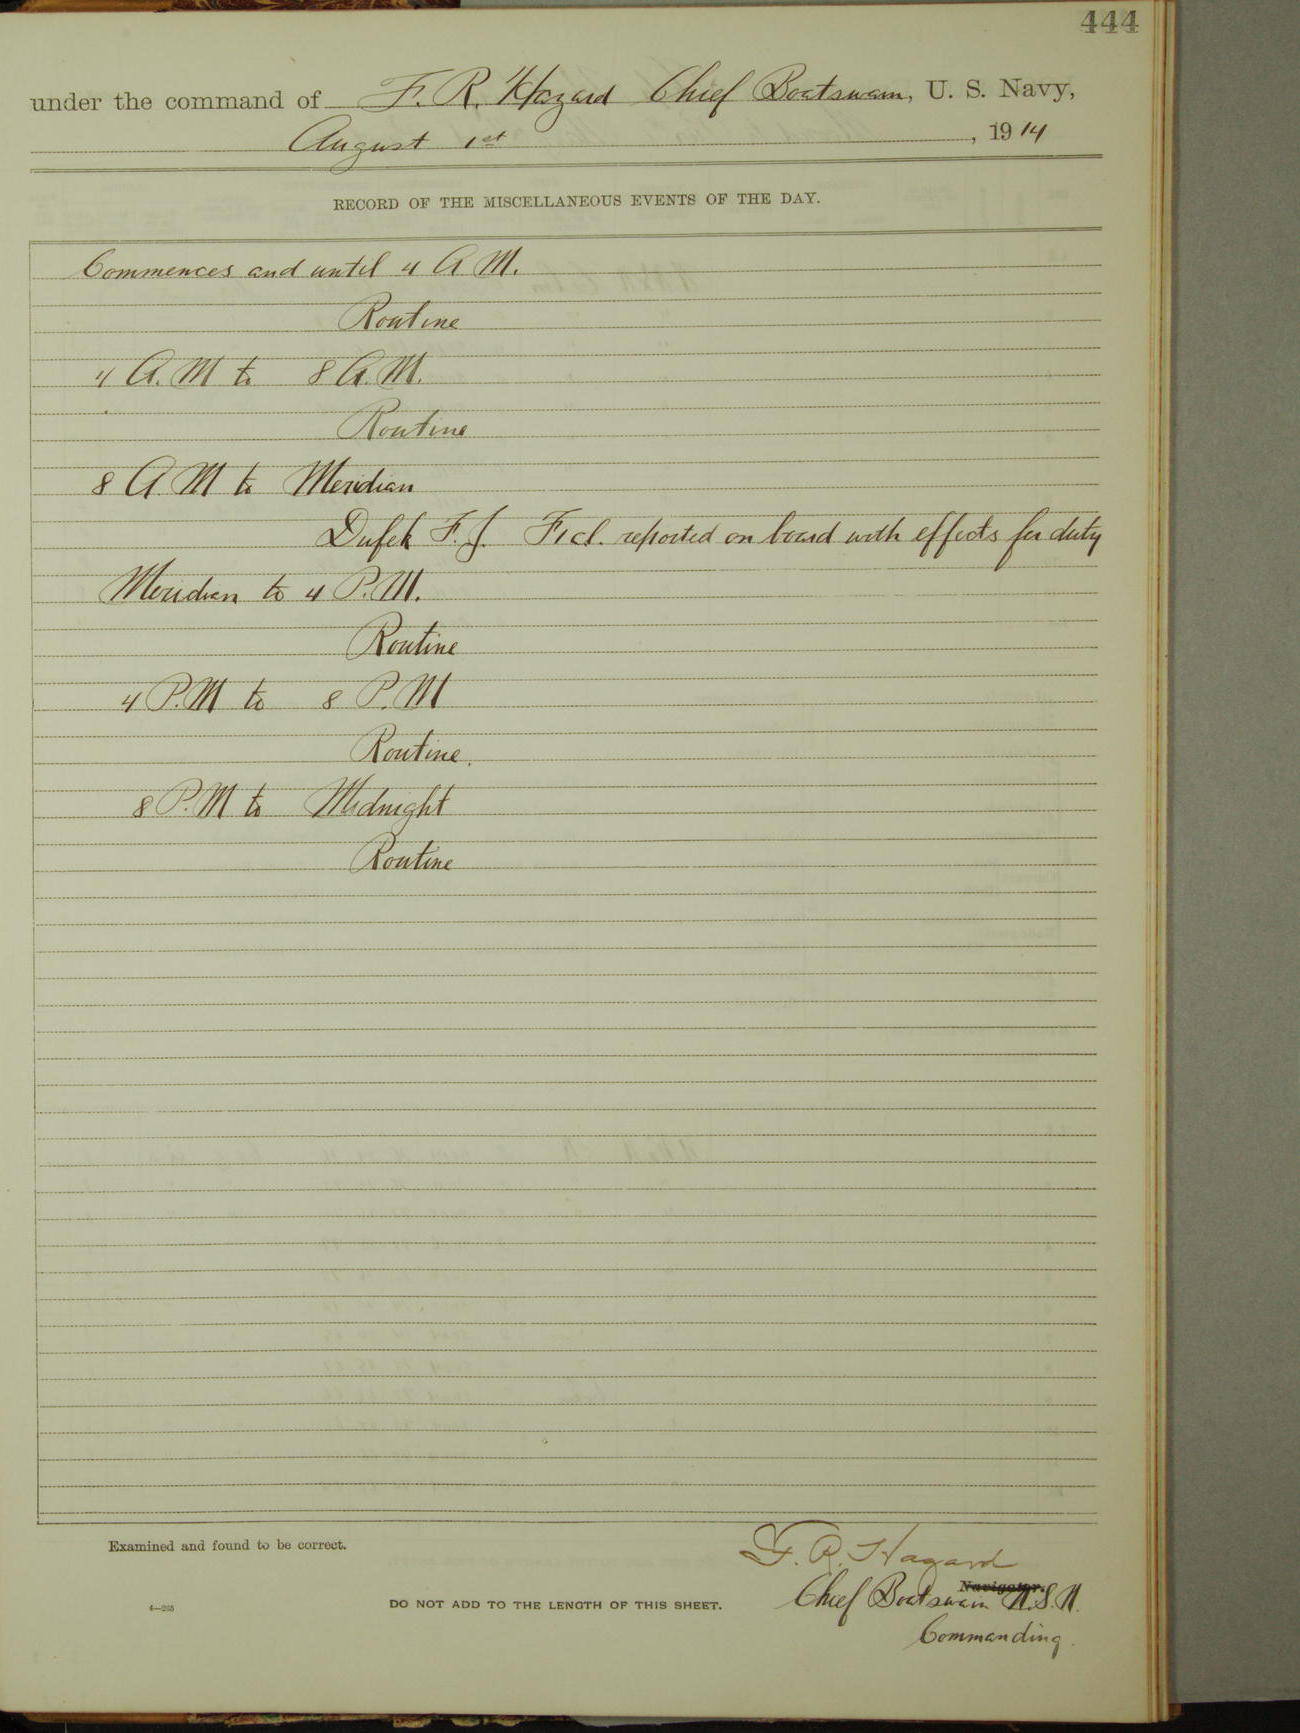 444
under the command of F. R. Hazard Chief Boatswain, U. S. Navy,
August 1st, 1914
RECORD OF THE MISCELLANEOUS EVENTS OF THE DAY.
Commences and until 4 A M.
Routine
4 A. M to 8 A. M.
Routine
8 A. M to Meridian
Dufek F. J. F1cl. reported on board with effects for duty
Meridian to 4 P. M.
Routine
4 P. M to 8 P. M
Routine.
8 P. M to Midnight
Routine
Examined and found to be correct.
F. R. Hazard
Navigator.
Chief Boatswain U.S.N.
4—265
DO NOT ADD TO THE LENGTH OF THIS SHEET.
Commanding.